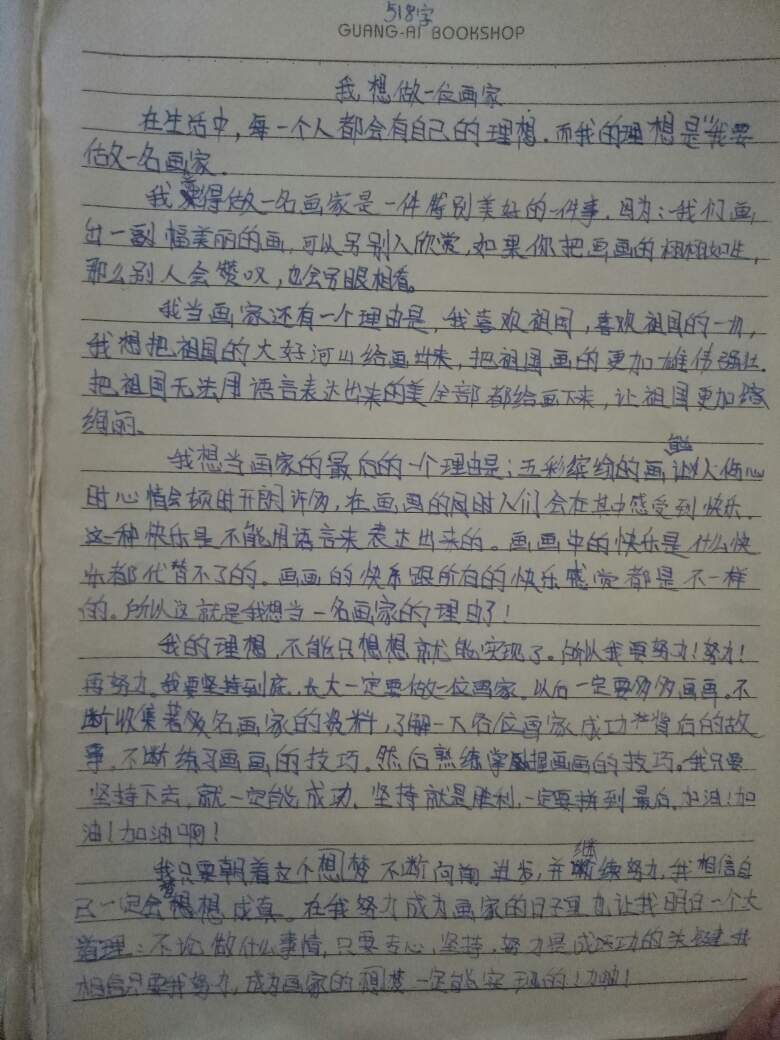 518字
GUANG-AI BOOKSHOP
我想做一位画家
在生活中，每一个人都会有自己的理想．而我的理想是"我要
做一名画家．
我觉得做一名画家是一件特别美好的一件事．因为：我们画
出一副幅美丽的画，可以另别人欣赏，如果你把画画的栩栩如生，
那么别人会赞叹，也会另眼相看。
我当画家还有一个理由是，我喜欢祖国，喜欢祖国的一切，
我想把祖国的大好河山给画出来，把祖国画的更加雄伟强壮．
把祖国无法用语言表达出来的美全部都给画下来，让祖国更加缤
绚丽、
我想当画家的最后的一个理由是；五彩缤纷的画能让人伤心
时心情会顿时开朗许多，在画画的同时人们会在其中感受到快乐．
这一种快乐是不能用语言来表达出来的。画画中的快乐是什么快
乐都代替不了的。画画的快乐跟所有的快乐感觉都是不一样
的。所以这就是我想当一名画家的理由了！
我的理想，不能只想想就能实现了。所以我要努力！努力！
再努力。我要坚持到底，长大一定要做一位画家．以后一定要多多画画．不
断收集著名画家的资料，了解一下各位画家成功背后的故
事．不断练习画画的技巧．然后熟练掌握画画的技巧。我只要
坚持下去，就一定能成功．坚持就是胜利，一定要拼到最后．加油！加
油！加油啊！
我只要朝着这个梦不断向前进发，并继续努力，我相信自
己一定会梦想成真。在我努力成为画家的日子里也让我明白一个大
道理：不论做什么事情，只要专心，坚持，努力是成功的关键我
相信只要我努力，成为画家的梦一定能实现的！加油！